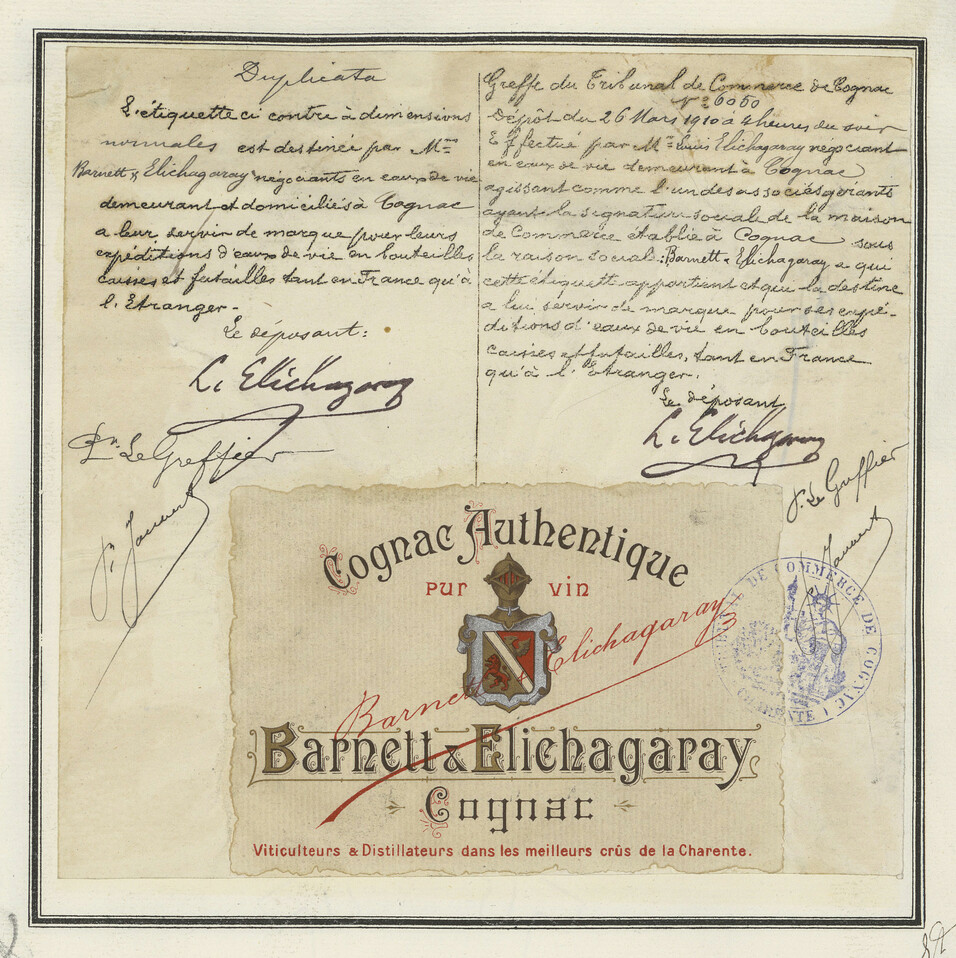 Duplicata
L'étiquette ci contre à dimensions
normales est destinée par Mrs
Barnett & Elichagaray negociants en eaux de vie
demeurant et domiciliés à Cognac
a leur servir de marque pour leurs
expéditions d'eaux de vie en bouteilles
caisses et futailles tant en France qu'à
l'Etranger.
Le déposant:
L. Elichagaray
Pr. Le Greffier
Greffe du Tribunal de Commerce de Cognac
No 6060
Dépôt du 26 Mars 1910 à 4 heures du soir
Effectué par Mr Louis Elichagaray negociant
en eaux de vie demeurant à Cognac
agissant comme l'un des associés gérants
ayant la signature sociale de la maison
de Commerce établie à Cognac sous
la raison sociale: Barnett & Elichagaray a qui
cette étiquette appartient et qui la destine
a lui servir de marque pour ses expé-
ditions d'eaux de vie en bouteilles
caisses et futailles, tant en France
qu'à l'Etranger.
Le déposant
L. Elichagaray
P. Le Greffier
Cognac Authentique
PUR VIN
Barnett & Elichagaray
Barnett & Elichagaray
Cognac
Viticulteurs & Distillateurs dans les meilleurs crûs de la Charente.
DE COMMERCE DE COGNAC